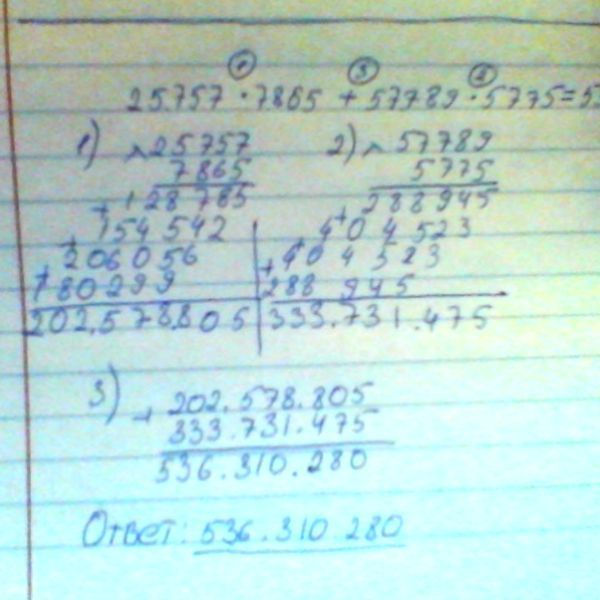 ① ③ ②
25757 · 7865 + 57789 · 5775 = 53
1) × 25757
7865
+ 128785
+ 154542
+ 206056
180299
202.578.805
2) × 57789
5775
288945
+ 404523
+ 404523
288945
333.731.475
3) + 202.578.805
333.731.475
536.310.280
Ответ: 536.310 280